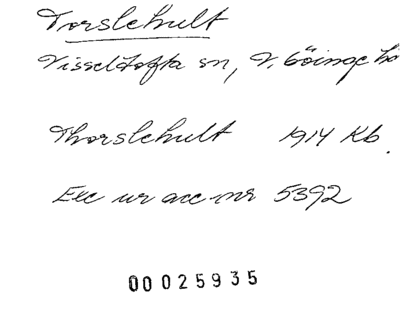 Torslehult
Visseltofta sn, V. Göinge hd
Thorslehult 1914 Kb.
Exc ur acc nr 5392
00025935